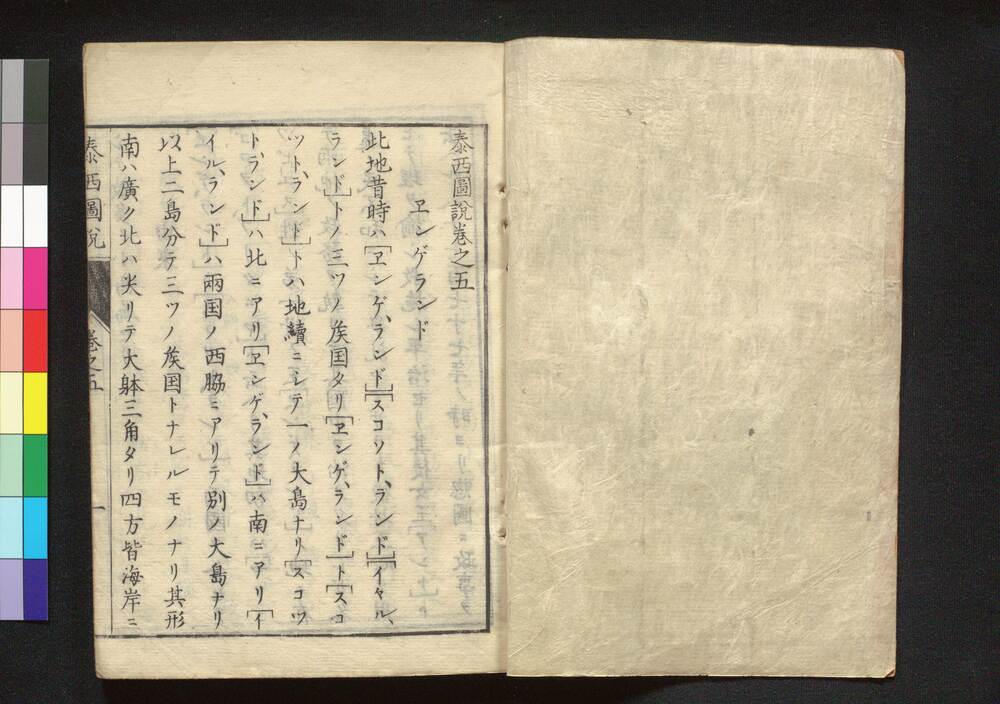 泰西圖說卷之五
ヱンゲランド
此地昔時ハ[ヱンゲ、ランド][スコツト、ランド][イヽル、
ランド]ト三ツノ矦国タリ[ヱンゲ、ランド]ト[スコ
ツト、ランド]トハ地續ニシテ一ノ大島ナリ[スコツ
ト、ランド]ハ北ニアリ[ヱンゲ、ランド]ハ南ニアリ[イ
イル、ランド]ハ兩国ノ西脇ニアリテ別ノ大島ナリ
以上二島分テ三ツノ矦国トナレルモノナリ其形
南ハ廣ク北ハ尖リテ大躰三角タリ四方皆海岸ニ
泰西圖說
卷之五
一